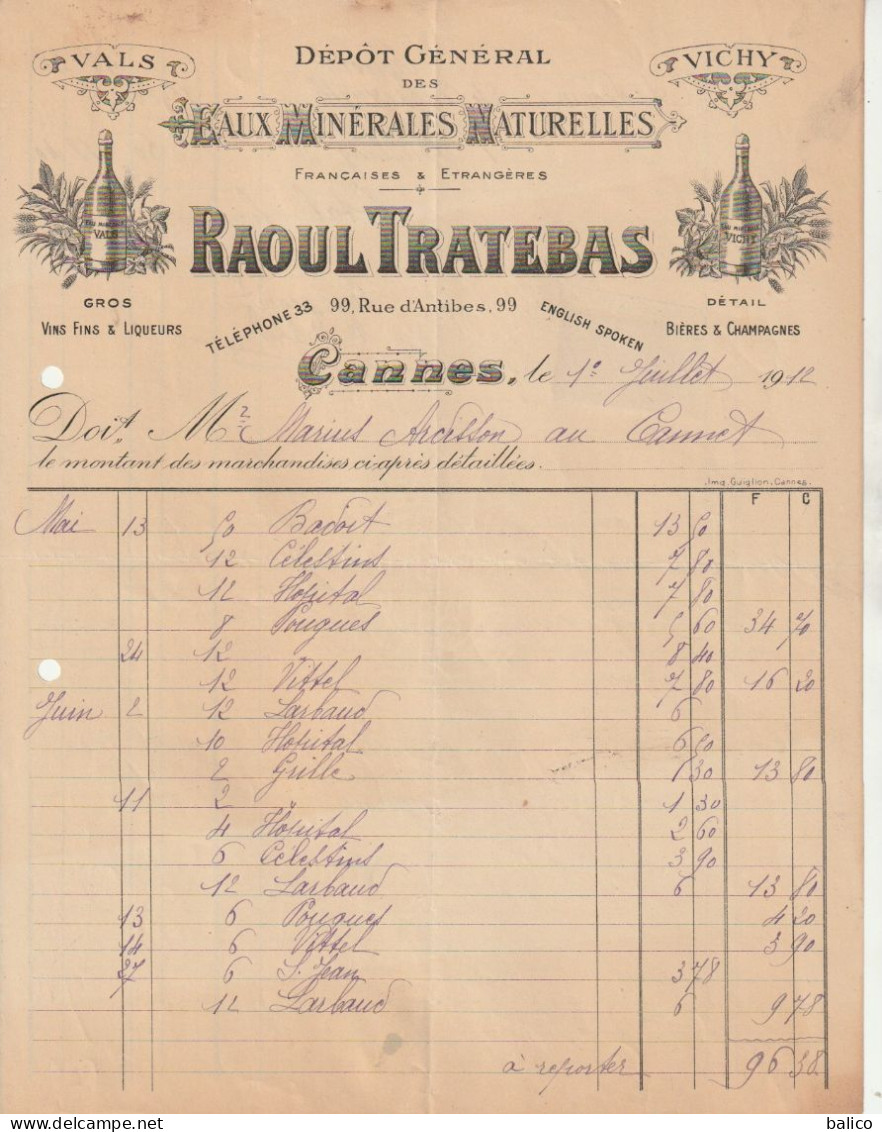 VALS
DÉPÔT GÉNÉRAL
VICHY
DES
EAUX MINÉRALES NATURELLES
FRANÇAISES & ETRANGÈRES
EAU MINÉRALE
VALS
EAU MINÉRALE
VICHY
RAOUL TRATEBAS
GROS
99, Rue d'Antibes, 99
DÉTAIL
VINS FINS & LIQUEURS
TÉLÉPHONE 33
ENGLISH SPOKEN
BIÈRES & CHAMPAGNES
Cannes, le 1º Juillet 1912
Doit Mr Marius Ardisson au Cannet
le montant des marchandises ci-après détaillées.
Imp. Guiglion, Cannes.
F C
Mai 13 50 Badoit 13 50
12 Célestins 7 80
12 Hôpital 7 80
8 Pougues 5 60 34 70
24 12 8 40
12 Vittel 7 80 16 20
Juin 2 12 Larbaud 6
10 Hôpital 6 50
2 Grille 1 30 13 80
11 2 " 1 30
4 Hôpital 2 60
6 Célestins 3 90
12 Larbaud 6 13 80
13 6 Pougues 4 20
14 6 Vittel 3 90
27 6 S. Jean 3 78
12 Larbaud 6 9 78
à reporter 96 38
balico